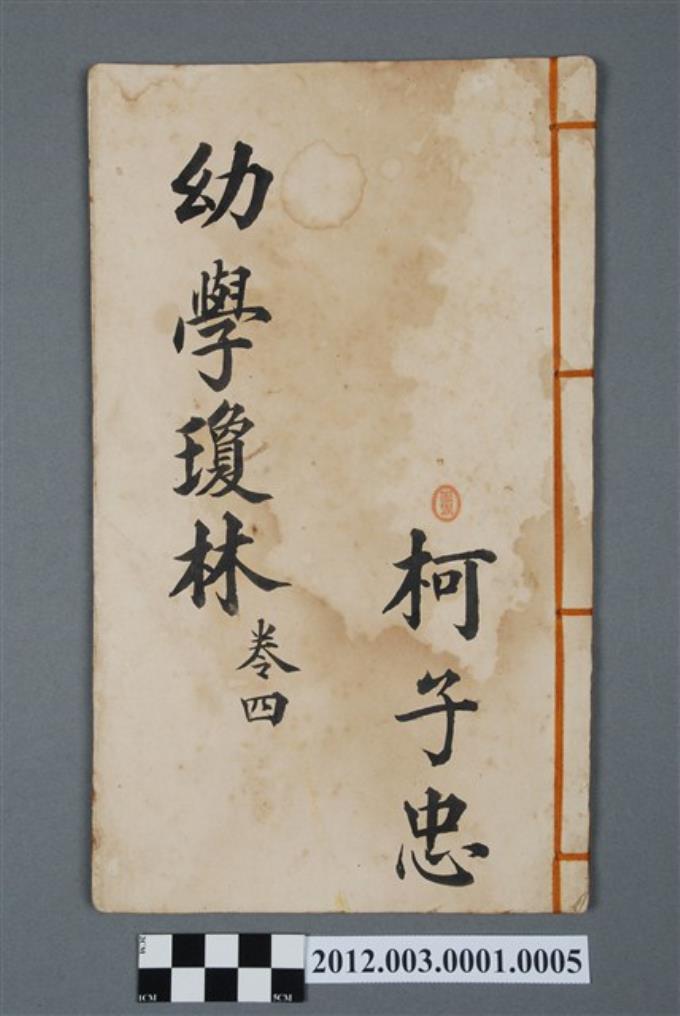 幼學瓊林
卷四
柯子忠
2CM
1CM
5CM
2012.003.0001.0005